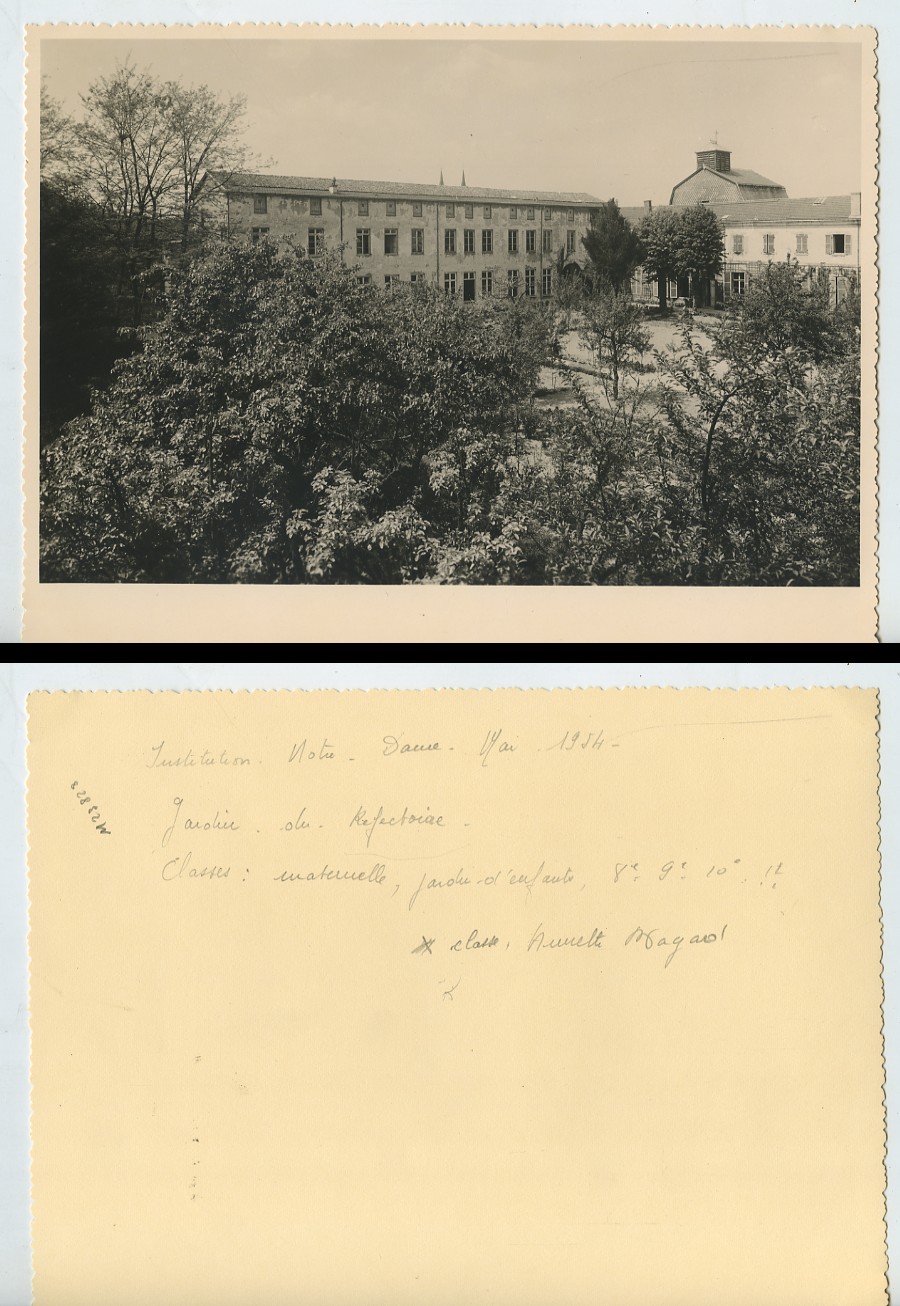 Institution. Notre. Dame. Mai 1954-
M23828
Jardin. du. Refectoire -
Classes: maternelle, jardin-d'enfants, 8e. 9e. 10e. 11
classe,